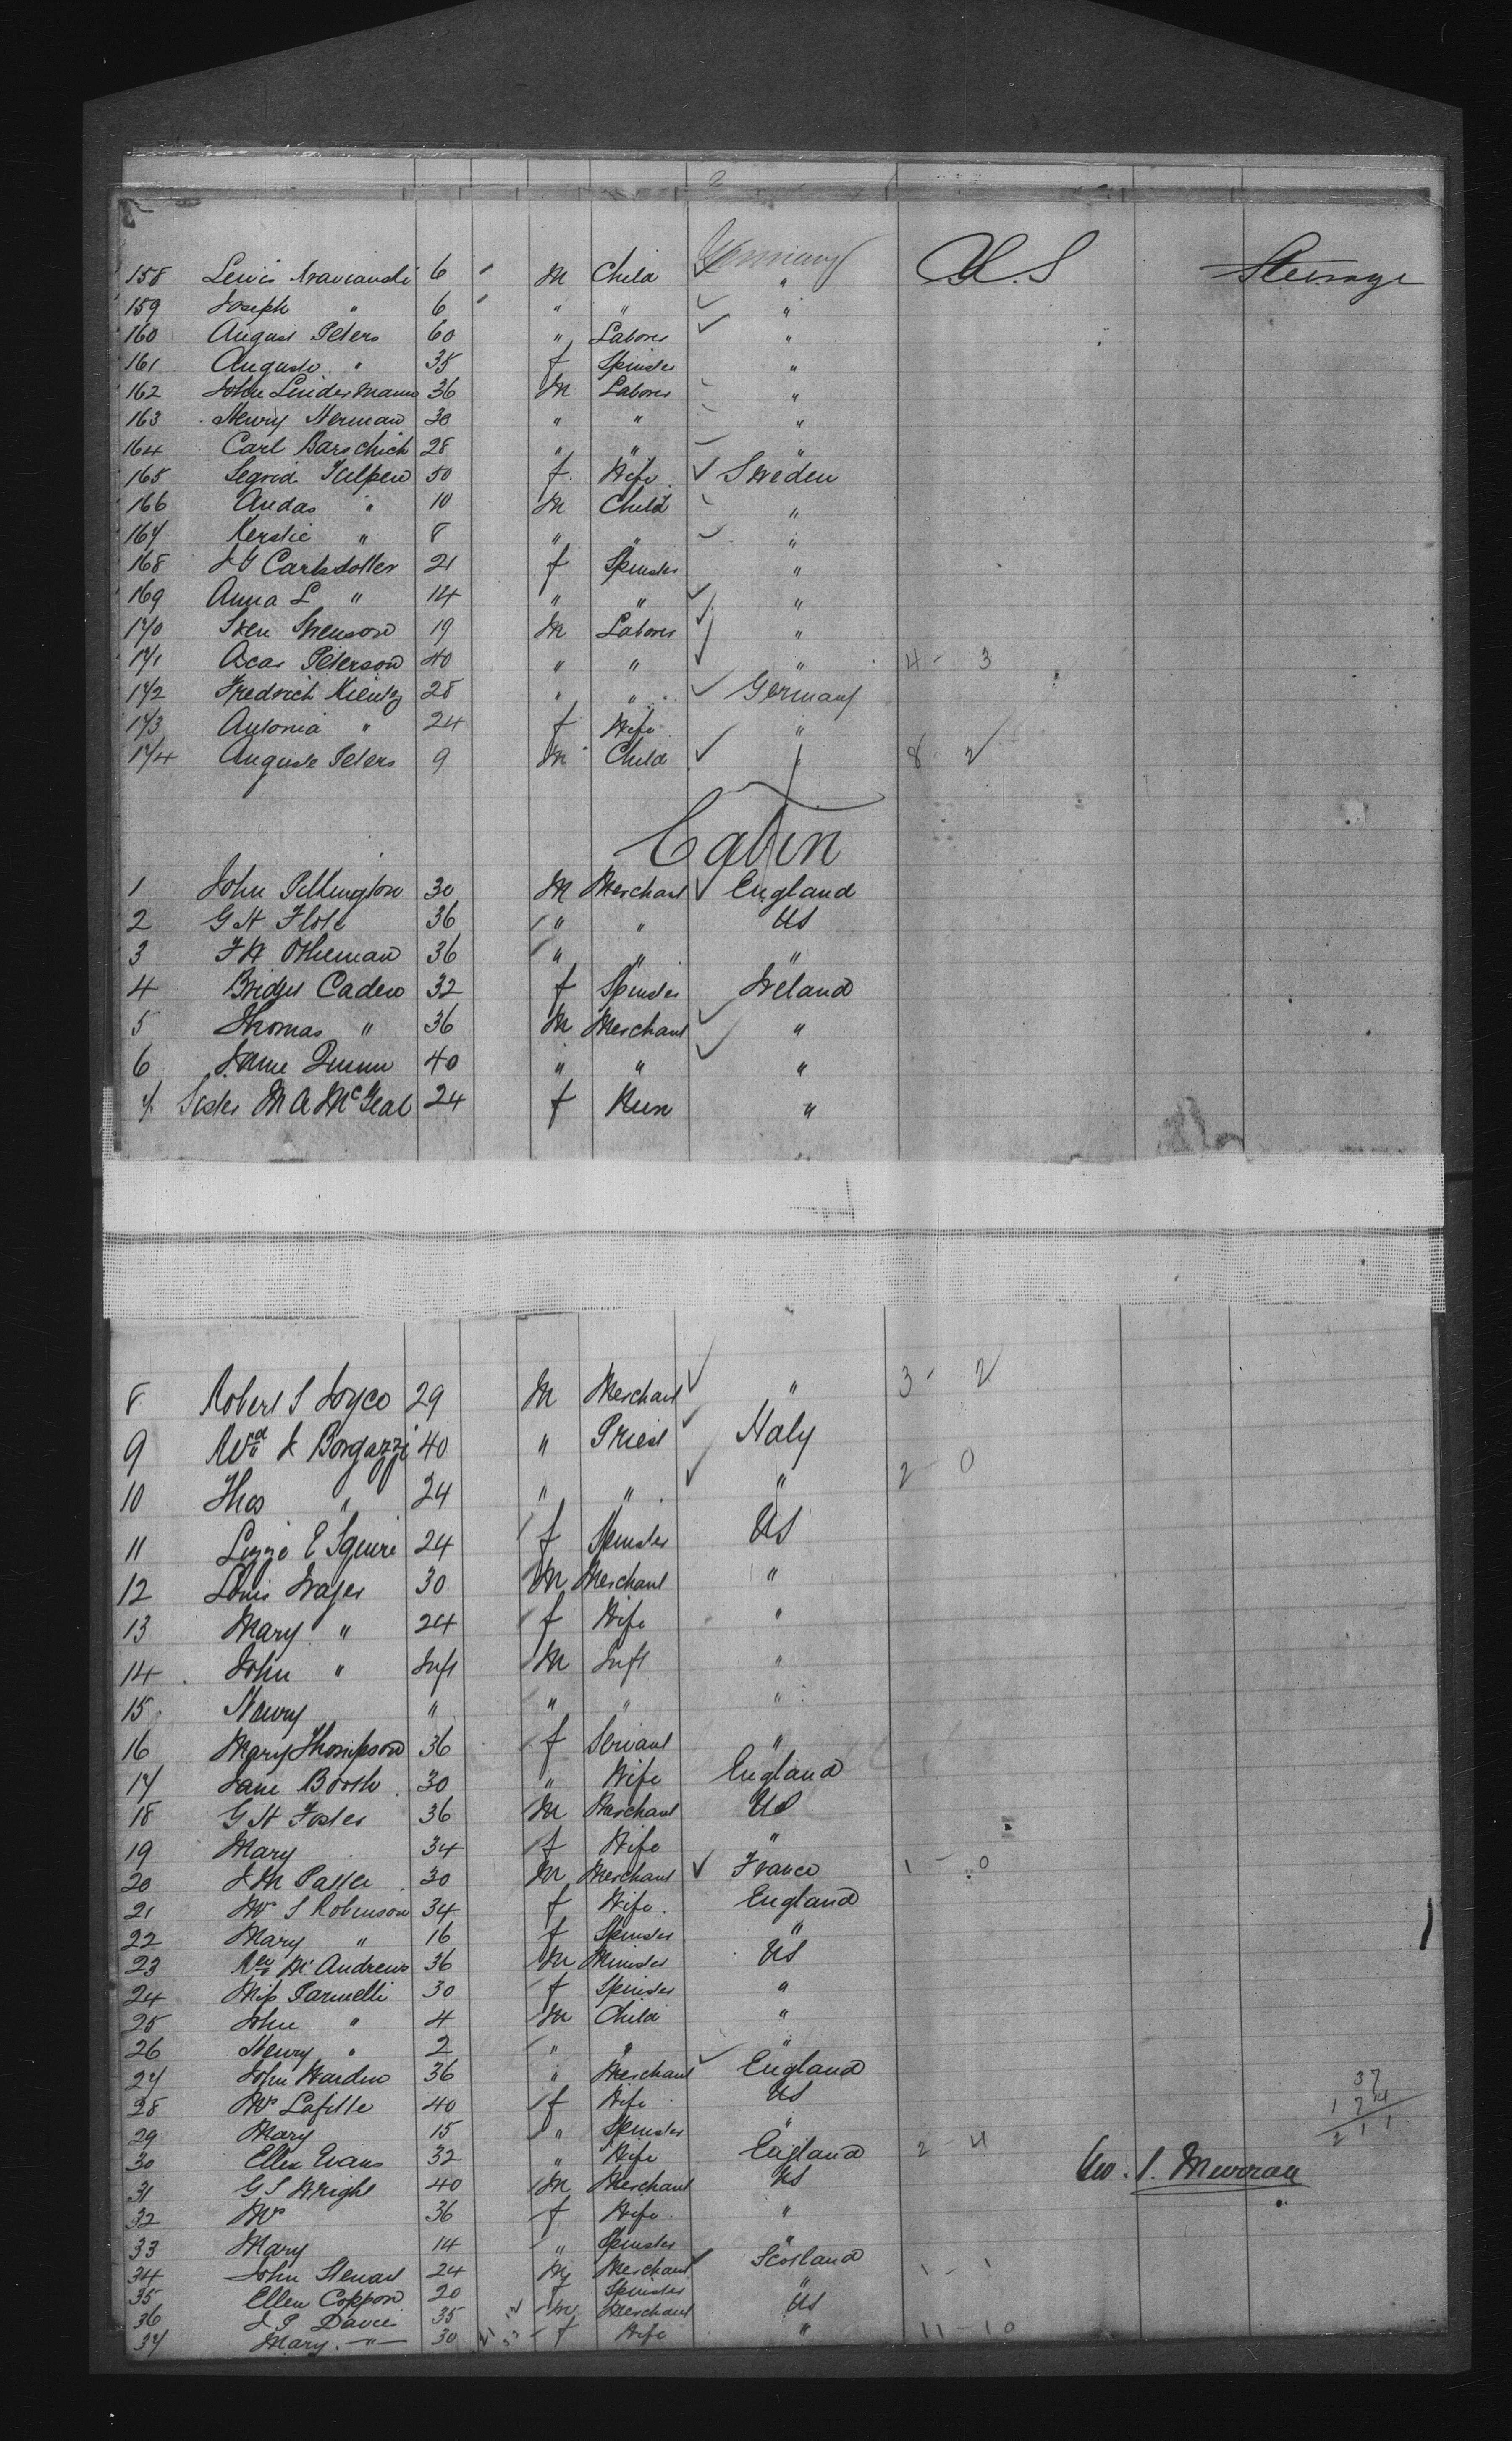 Germany U.S Steerage
158 Lewis 6 M Child "
159 Joseph " 6 " " "
160 August Peters 60 " Laborer "
161 Auguste " 35 f Spinster "
162 John Lindermann 36 M Laborer "
163 Henry Herman 30 " " "
164 Carl Barschich 28 " " "
165 Segrid 50 f Wife Sweden
166 Andas " 10 M Child "
167 Kerstie " 8 " " "
168 Carlsdotter 21 f Spinster "
169 Anna L " 14 " " "
170 Sven Svenson 19 M Laborer "
171 Peterson 40 " " " 4 - 3
172 Fredrich Kientz 28 " " Germany
173 Antonia " 24 f Wife "
174 Auguste Peters 9 M Child " 8 - 2
Cabin
1 John Pillington 30 M Merchant England
2 G H 36 " " US
3 F H Otheman 36 " " "
4 Bridget Caden 32 f Spinster Ireland
5 Thomas " 36 M Merchant "
6 40 " " "
7 Sister M A McGeal 24 f Nun "
8 Robert S Joyce 29 M Merchant " 3 - 2
9 Revd J Borgazzi 40 " Priest Italy
10 Thos " 24 " " " 2 - 0
11 Lizzie E Squire 24 f Spinster US
12 Louis 30 M Merchant "
13 Mary " 24 f Wife "
14 John " Inft M Inft "
15 Henry " " " "
16 Mary Thompson 36 f Servant "
17 Jane Booth 30 " Wife England
18 G H Foster 36 M Merchant US
19 Mary 34 f Wife "
20 J M 30 M Merchant France 1 - 0
21 Mrs S Robinson 34 f Wife England
22 Mary " 16 f Spinster "
23 Rev Mc Andrews 36 M Minister US
24 Miss Parmelli 30 f Spinster "
25 John " 4 M Child "
26 Henry " 2 " " "
27 John Harden 36 " Merchant England
28 Mrs Lafitte 40 f Wife US
29 Mary 15 " Spinster "
30 Ellen Evans 32 " Wife England 2 - 4
31 G S Wright 40 M Merchant US
32 Mrs 36 f Wife "
33 Mary 14 " Spinster "
34 John Stewart 24 M Merchant Scotland 1 - 1
35 Ellen Coppon 20 f Spinster "
36 J P Davie 35 M Merchant US
37 Mary " 30 f Wife " 11 - 10
37
174
211
Geo. S. Murray